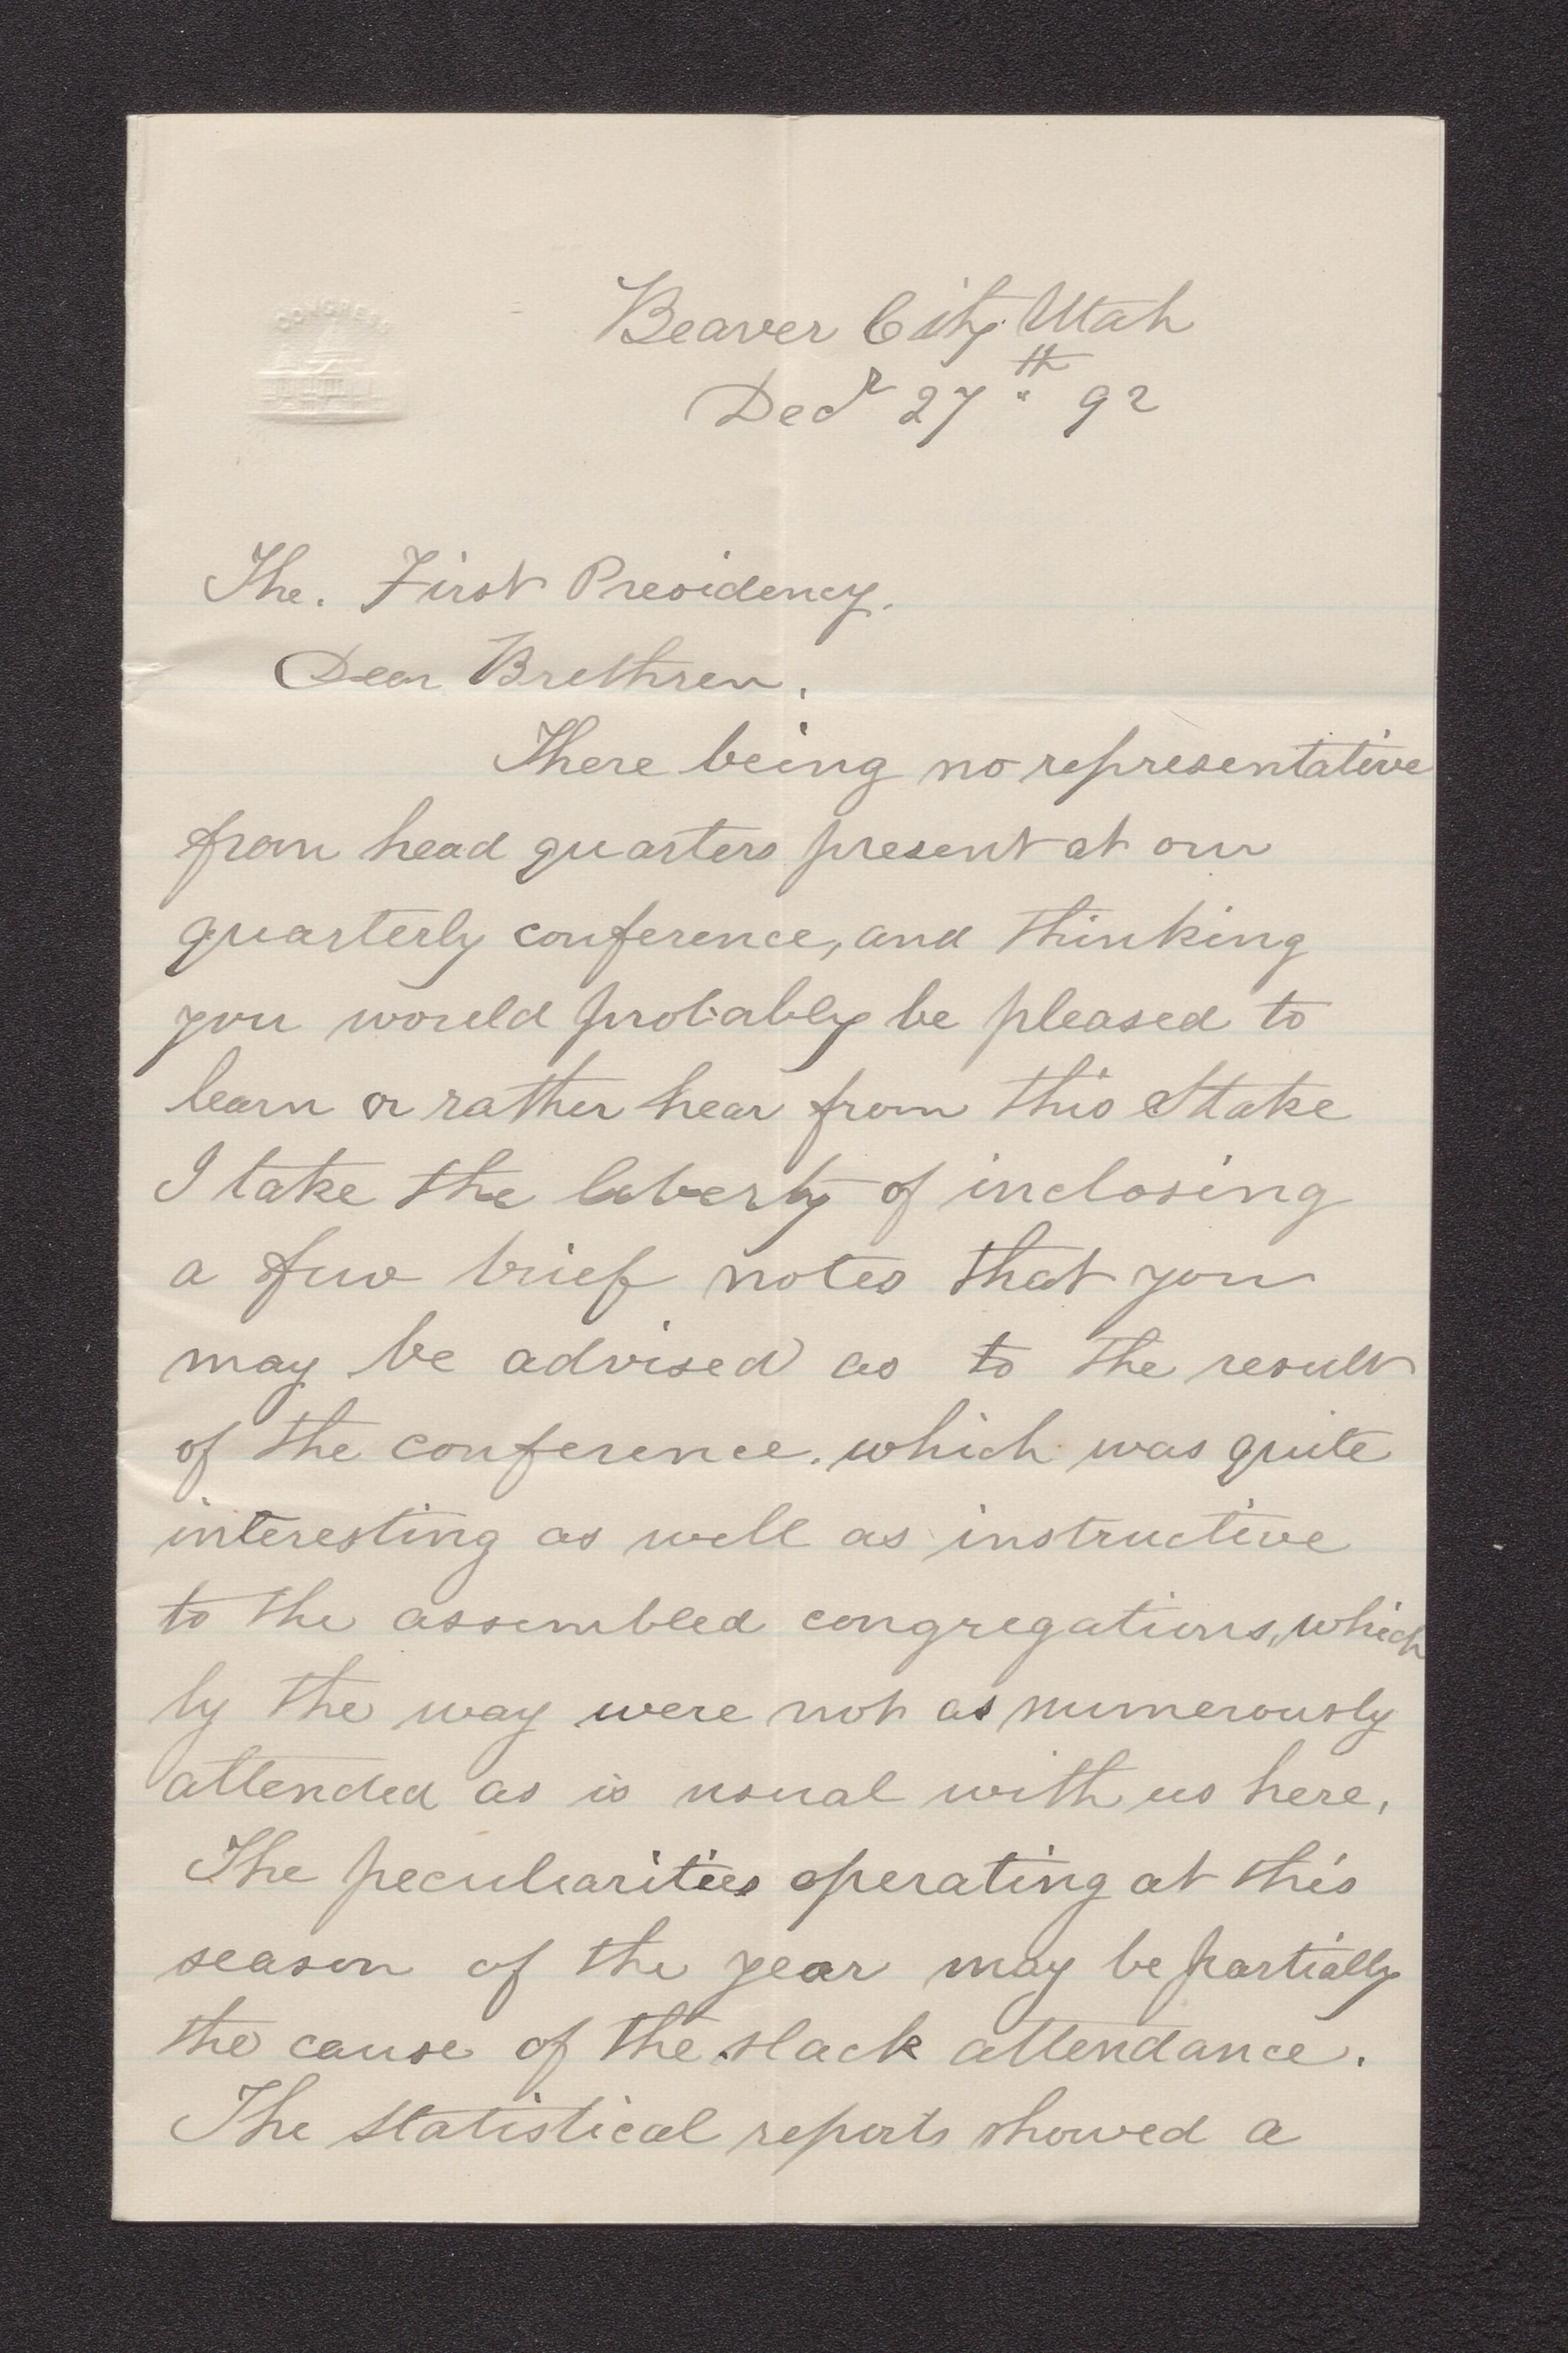 CONGRESS
Beaver City Utah
Decr 27th 92
The. First Presidency.
Dear Brethren.
There being no representative
from head quarters present at our
quarterly conference, and thinking
you would probably be pleased to
learn or rather hear from this Stake
I take the liberty of inclosing
a few brief notes that you
may be advised as to the result
of the conference. which was quite
interesting as well as instructive
to the assembled congregations, which
by the way were not as numerously
attended as is usual with us here.
The peculiarities operating at this
season of the year may be partially
the cause of the slack attendance.
The statistical reports showed a